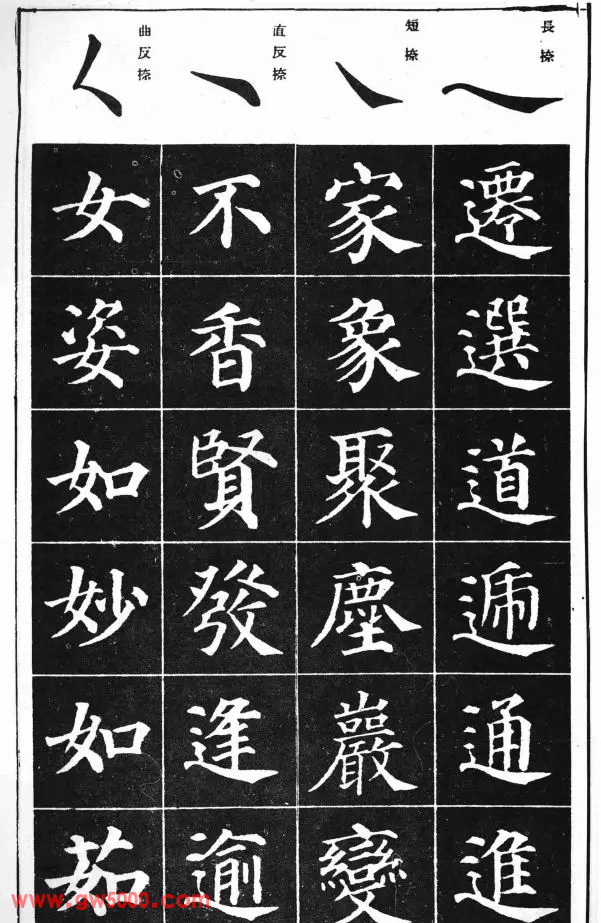 長捺
遷選道遞通進
短捺
家象聚塵巖變
直反捺
不香賢發逢逾
曲反捺
女姿如妙如茹
www.gw5000.com